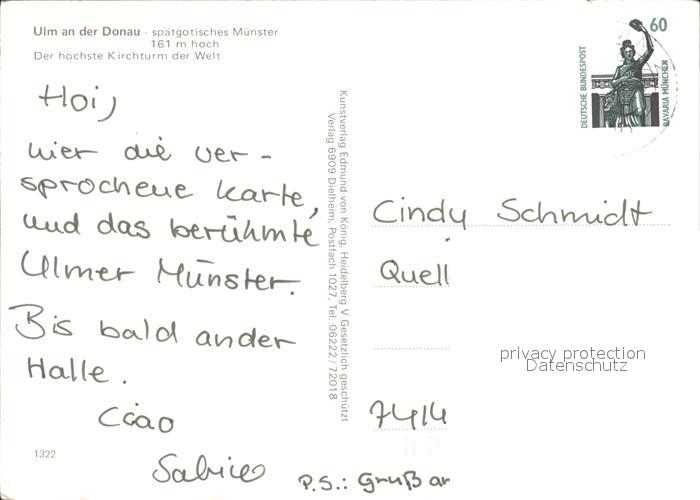 Ulm an der Donau - spätgotisches Münster
161 m hoch
Der höchste Kirchturm der Welt
Hoi,
hier die ver-
sprochene Karte,
und das berühmte
Ulmer Münster.
Bis bald an der
Halle.
Ciao
Sabine
1322
P.S.: Gruß an
Kunstverlag Edmund von König, Heidelberg V Gesetzlich geschützt
Verlag 6909 Dielheim, Postfach 1027, Tel. 06222/72018
60
DEUTSCHE BUNDESPOST
BAVARIA MÜNCHEN
Cindy Schmidt
Quell
7414
privacy protection
Datenschutz